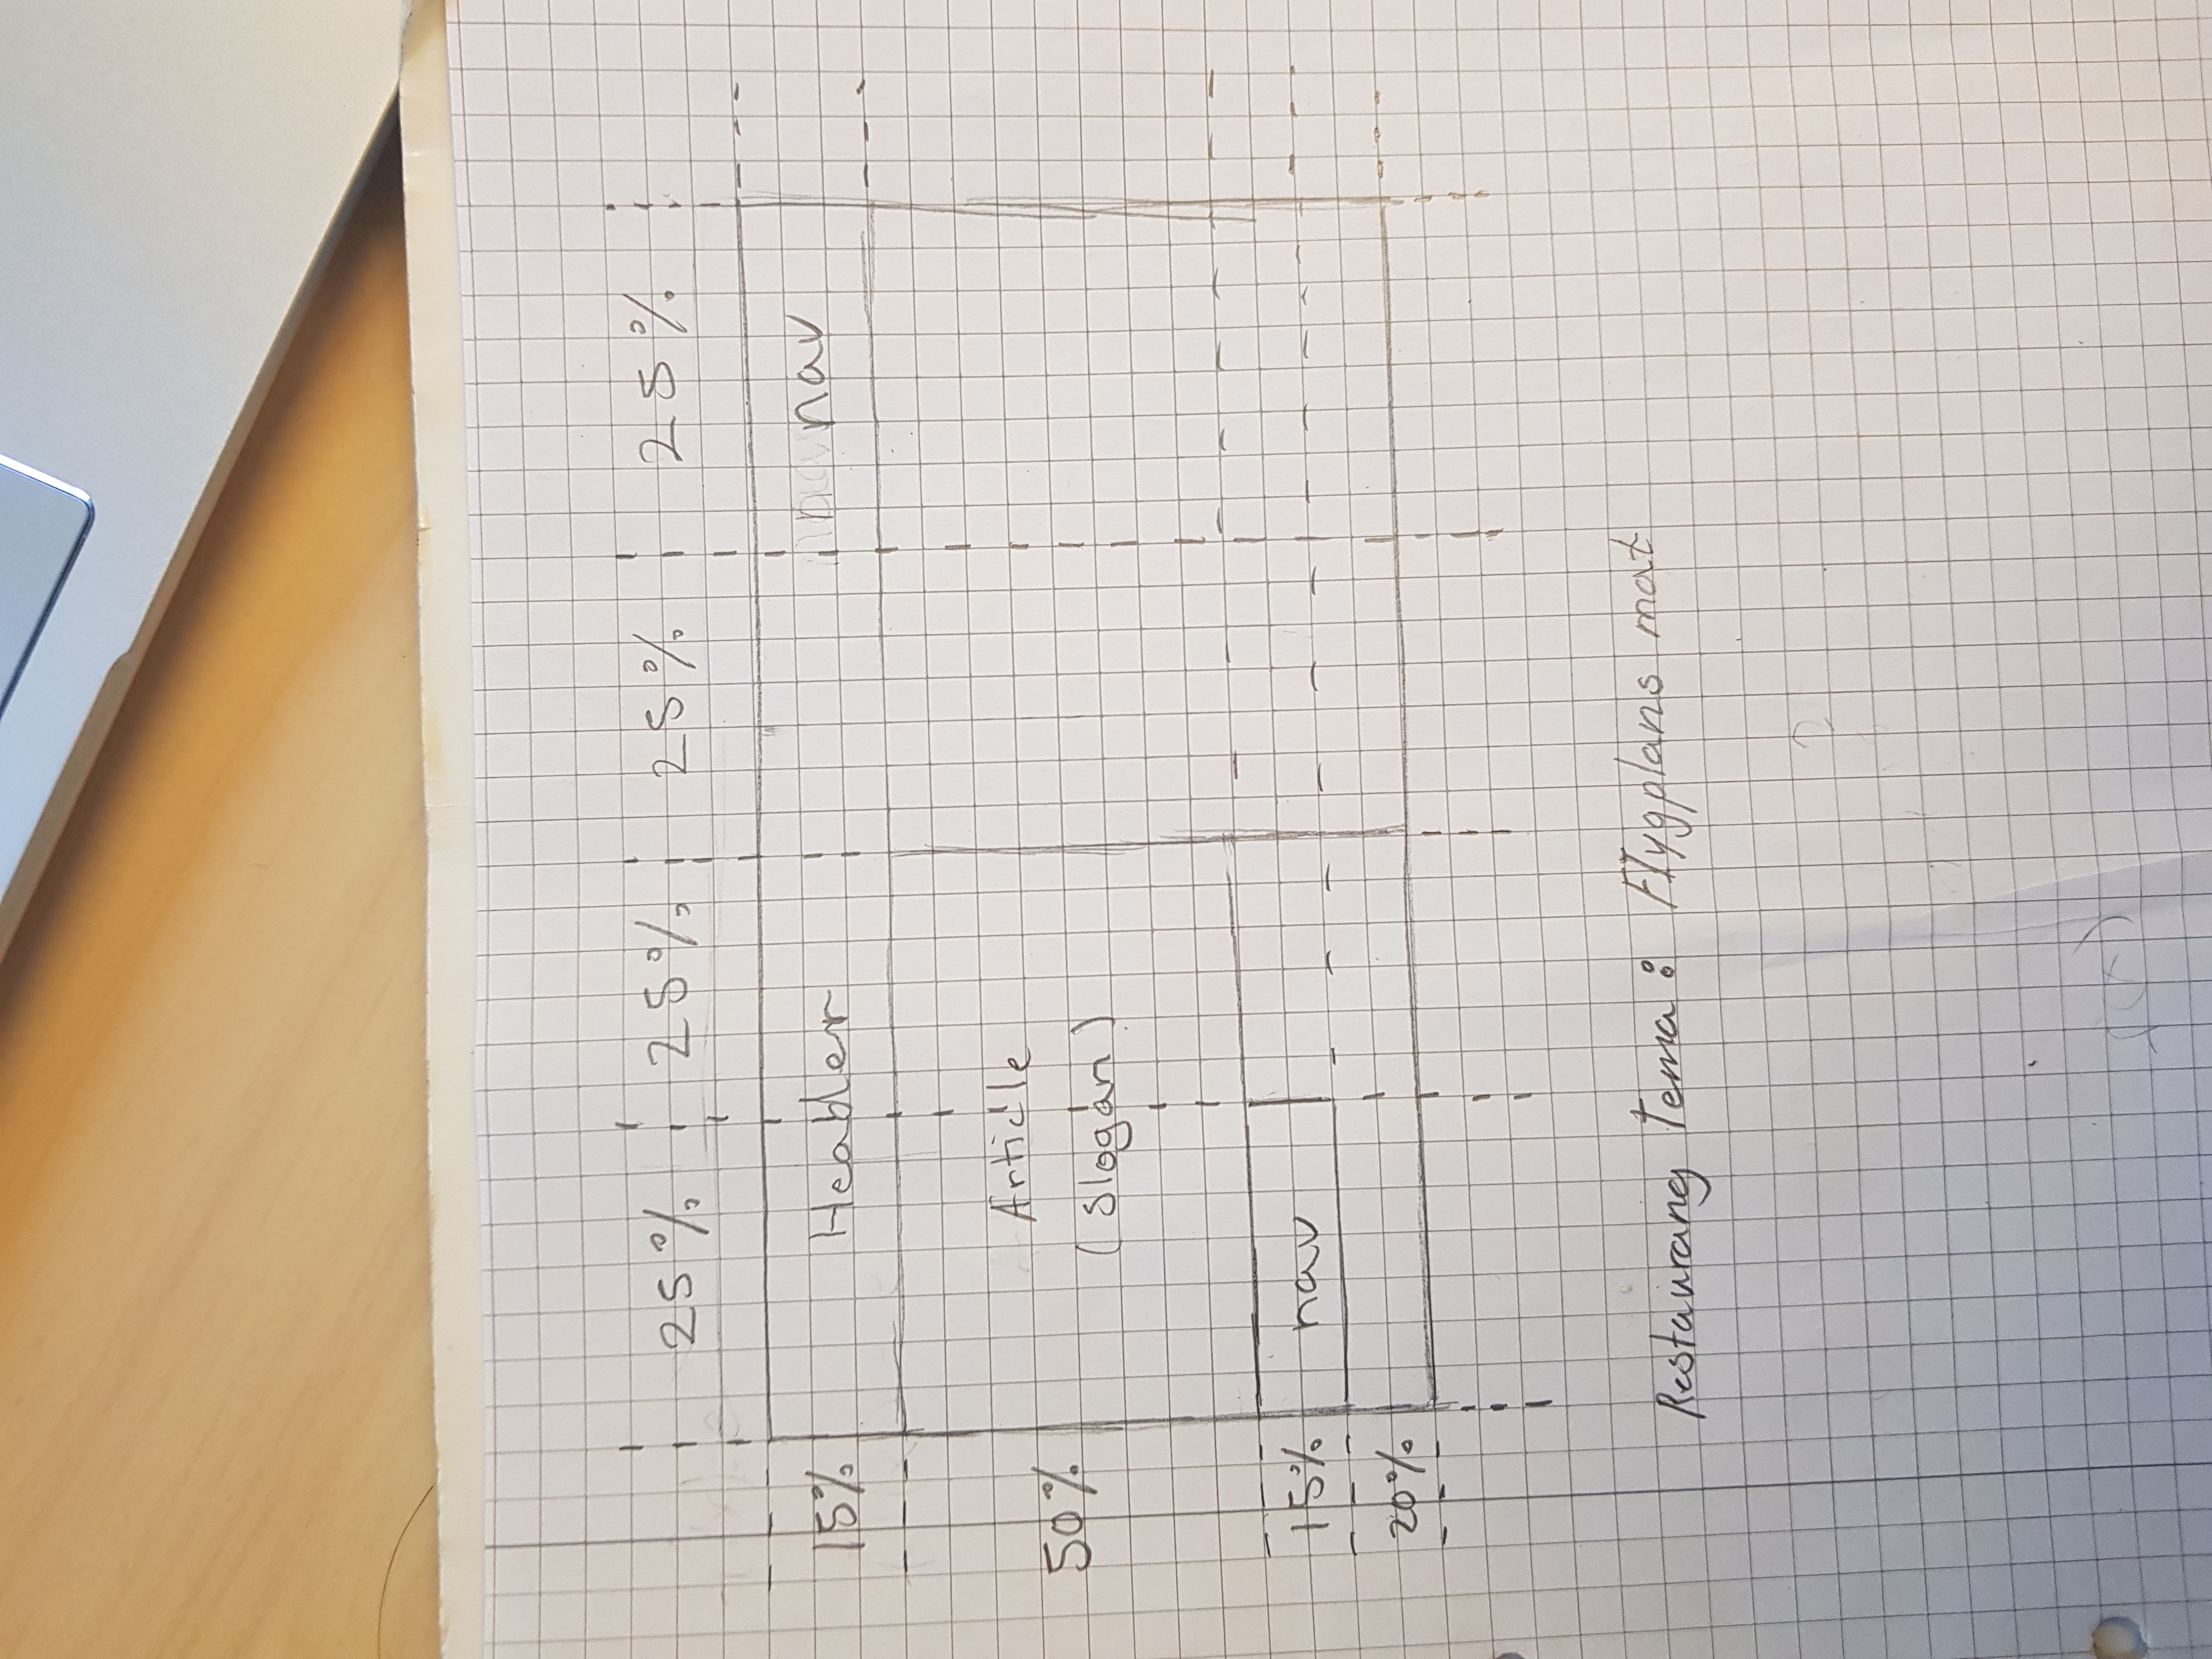 25% 25% 25% 25%
15% Header nav
50% Article
(Slogan)
15% nav
20%
Restaurang Tema: Flygplans mat